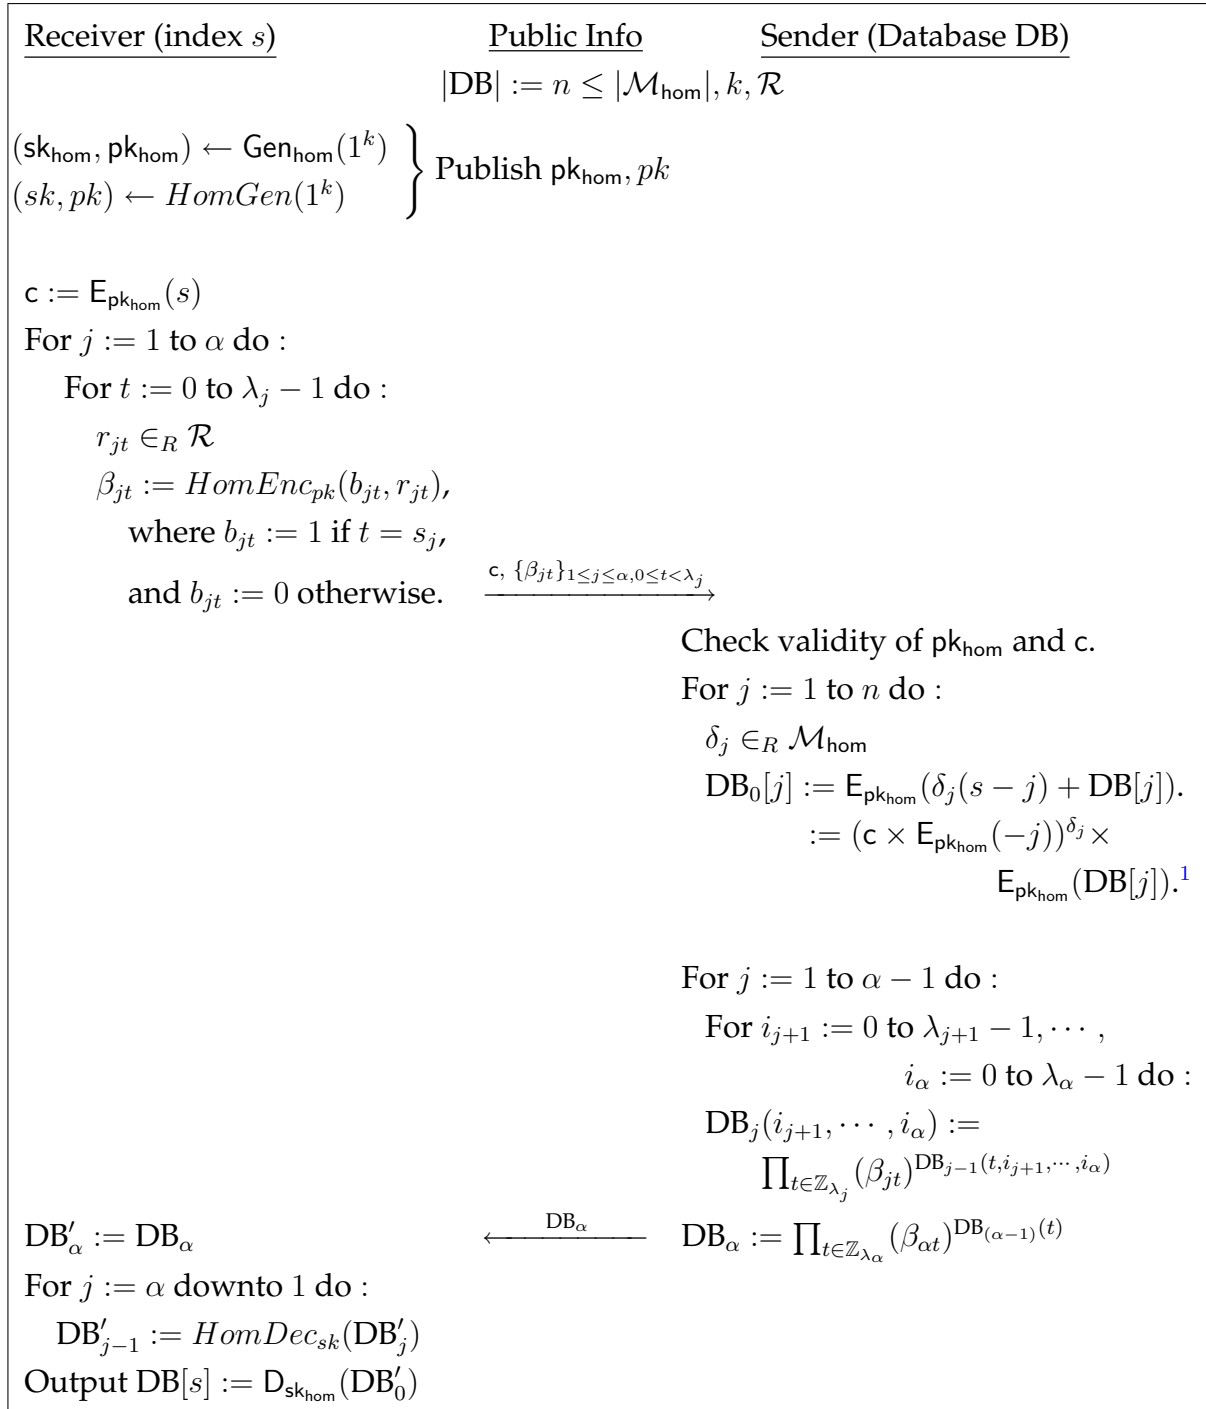 Receiver (index s) Public Info Sender (Database DB)
|DB| := n ≤ |ℳ_hom|, k, ℛ
(sk_hom, pk_hom) ← Gen_hom(1^k)
(sk, pk) ← HomGen(1^k)
} Publish pk_hom, pk
c := E_{pk_hom}(s)
For j := 1 to α do :
For t := 0 to λ_j − 1 do :
r_{jt} ∈_R ℛ
β_{jt} := HomEnc_{pk}(b_{jt}, r_{jt}),
where b_{jt} := 1 if t = s_j,
and b_{jt} := 0 otherwise. c, {β_{jt}}_{1≤j≤α,0≤t<λ_j} ⟶
Check validity of pk_hom and c.
For j := 1 to n do :
δ_j ∈_R ℳ_hom
DB_0[j] := E_{pk_hom}(δ_j(s − j) + DB[j]).
:= (c × E_{pk_hom}(−j))^{δ_j} ×
E_{pk_hom}(DB[j]).^1
For j := 1 to α − 1 do :
For i_{j+1} := 0 to λ_{j+1} − 1, ⋯ ,
i_α := 0 to λ_α − 1 do :
DB_j(i_{j+1}, ⋯ , i_α) :=
∏_{t∈ℤ_{λ_j}} (β_{jt})^{DB_{j−1}(t,i_{j+1},⋯,i_α)}
DB′_α := DB_α ⟵ DB_α DB_α := ∏_{t∈ℤ_{λ_α}} (β_{αt})^{DB_{(α−1)}(t)}
For j := α downto 1 do :
DB′_{j−1} := HomDec_{sk}(DB′_j)
Output DB[s] := D_{sk_hom}(DB′_0)